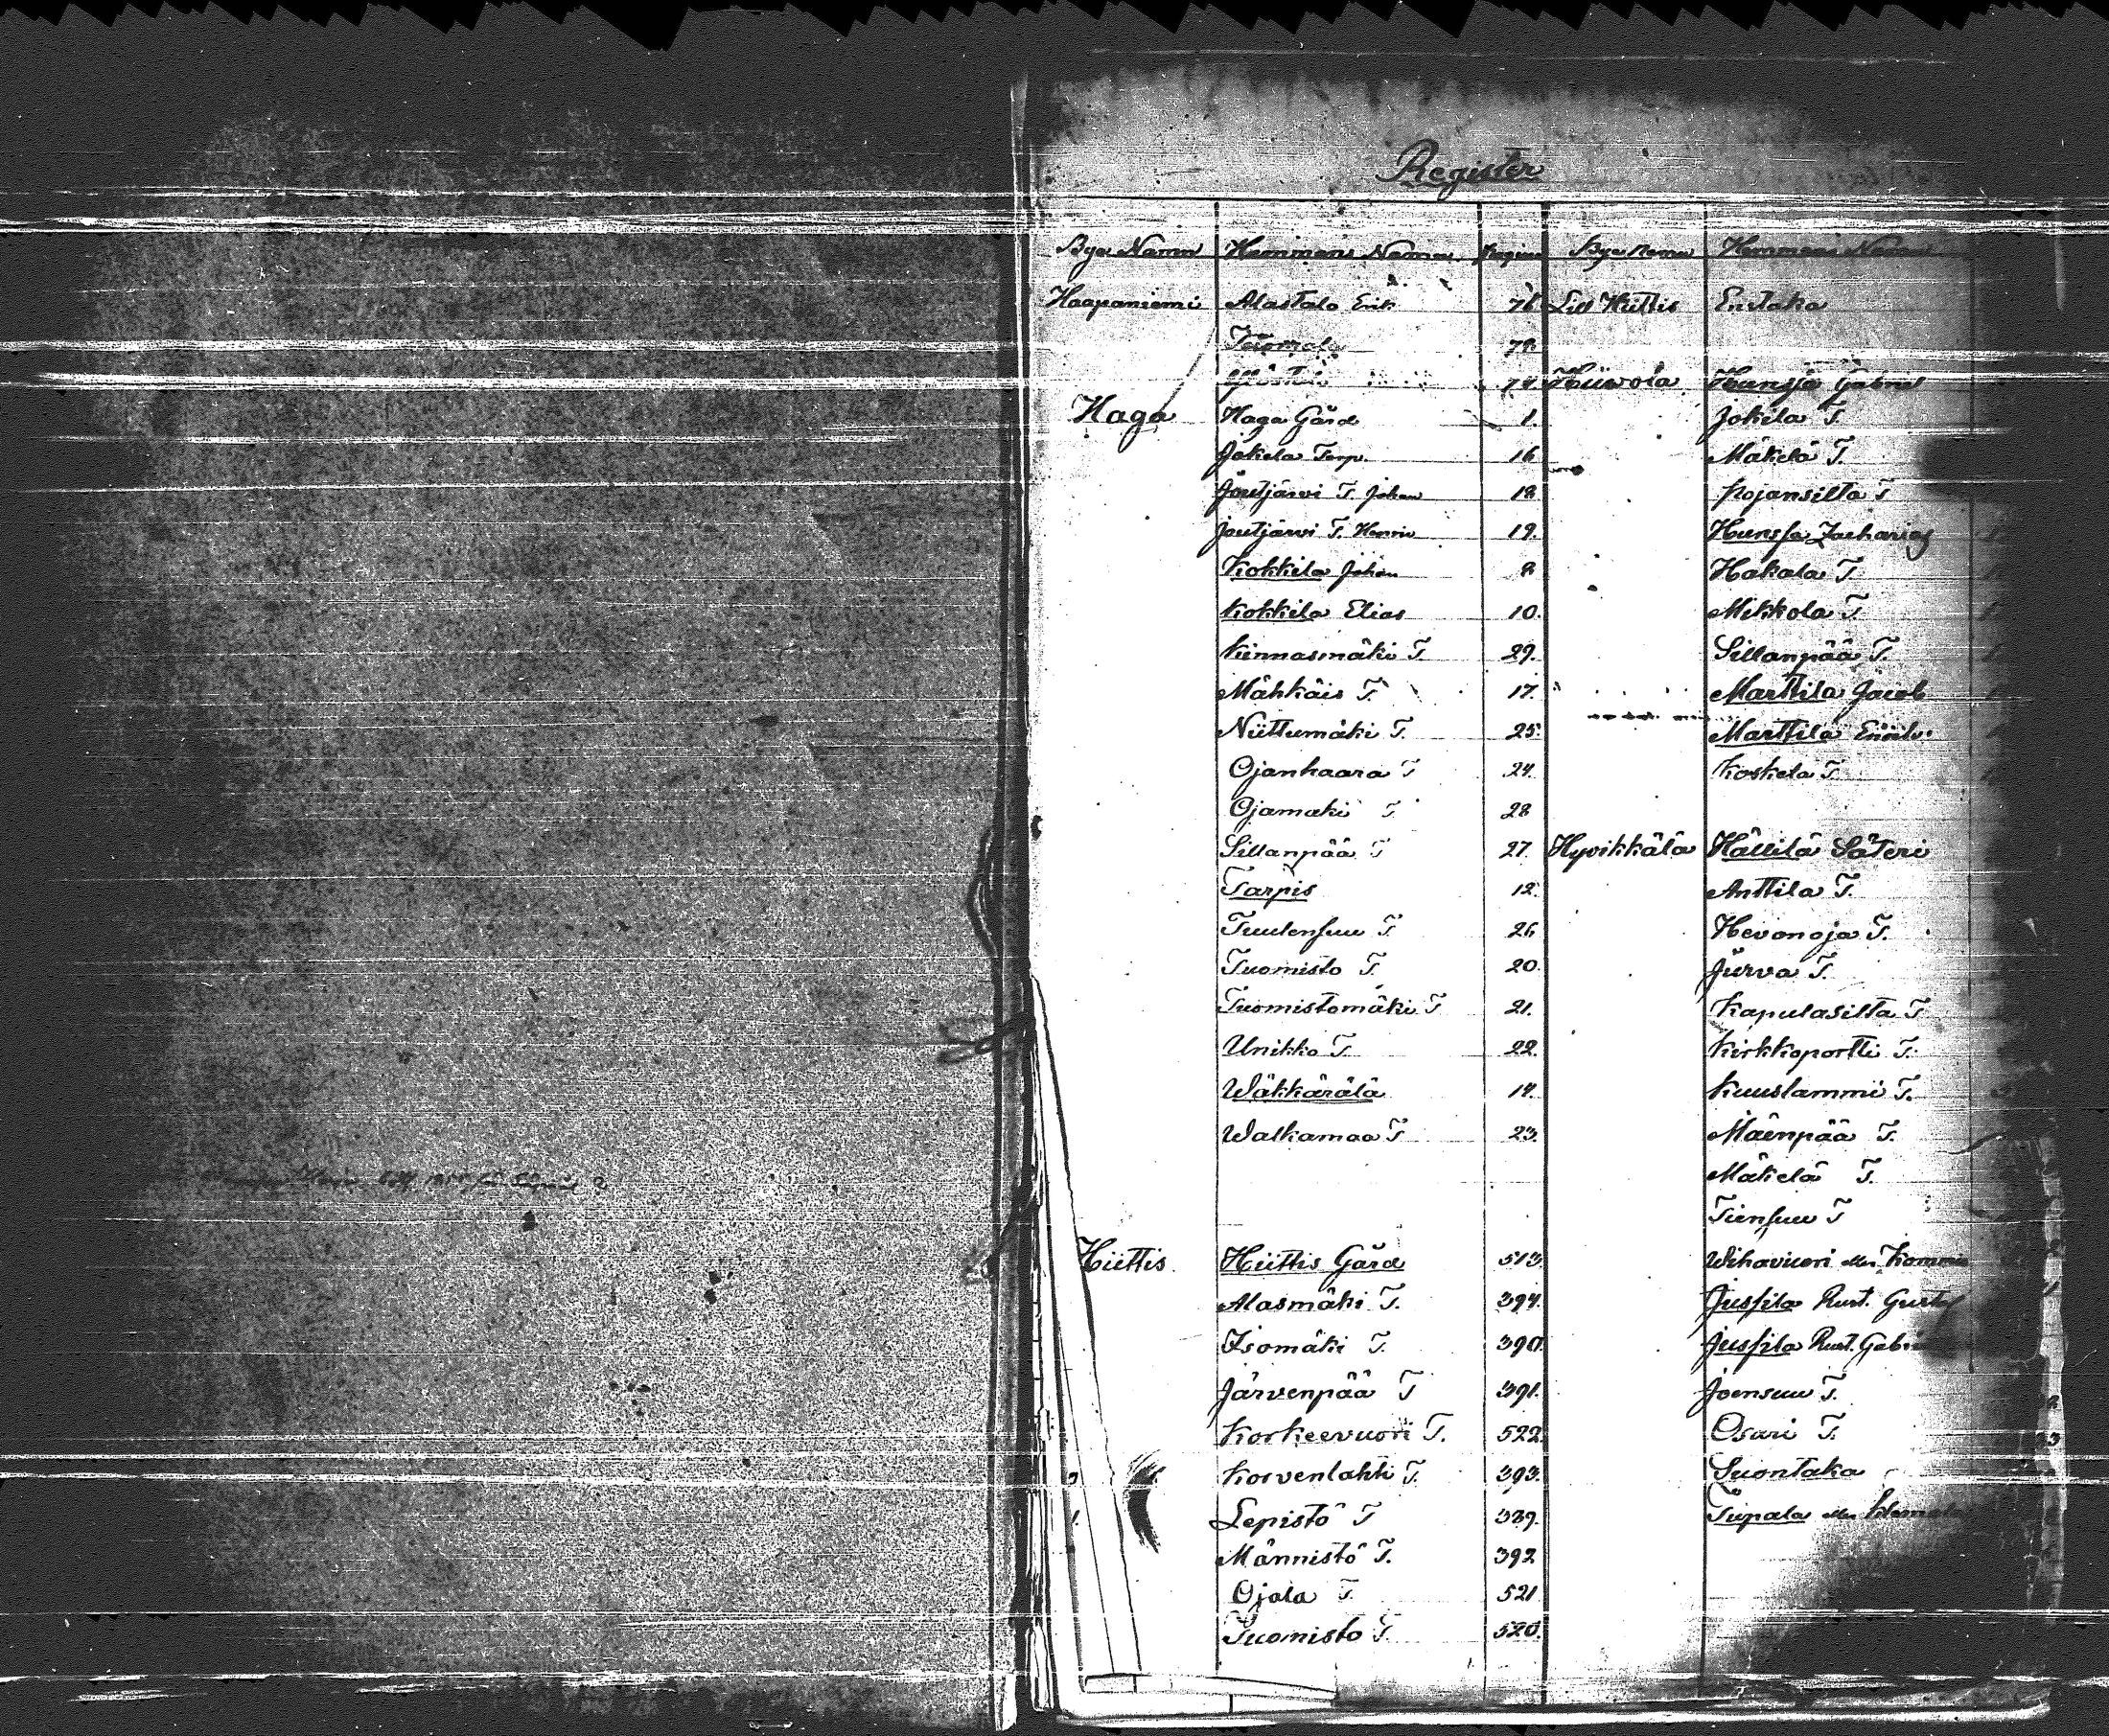 Register
Bya Namn Hemmans Namn Pagina Bya Namn Hemmans Namn
Haapaniemi Alastalo Erik 76 Lill Hiittis Eentaka
78
Hiiwola Hunssa Gabriel
Haga Haga Gård 1. Jokela T.
Jokela Torp. 16 Mäkelä T.
Joutjärvi T. Johan 18 Pojansilta T
Joutjärvi T. Henric 19. Hunssa Zacharias
Kokkila Johan 8 Hakala T.
Kokkila Elias 10. Mikkola T.
Kinnasmäki T. 29. Sillanpää T.
Mähkäis T. 17. Marttila Jacob
Niittumäki T. 25. Marttila
Ojanhaara T 24. Koskela T.
Ojamäki T. 28
Sillanpää T 27. Hyvikkälä Hällilä Säteri
Tarpis 12. Anttila T.
Tuulensuu T. 26 Hevonoja T.
Tuomisto T. 20. Jurva T.
Tuomistomäki T 21. Kapulasilta T
Unikko T. 22. Kirkkoportti T.
Wäkkärälä 14. Kuuslammi T.
Walkamaa T 23. Mäenpää T.
Mäkelä T.
Tiensuu T
Hiittis Hiittis Gård 513. Wihavuori
Alasmäki T. 394. Jussila Rust. Gustaf
Isomäki T. 390. Jussila Rust. Gabriel
Järvenpää T 391. Joensuu T.
Korkeevuori T. 522. Osari T.
Korvenlahti T. 393. Suontaka
Lepistö T 389. Tupala
Männistö T. 392
Ojala T. 521
Tuomisto T. 520.